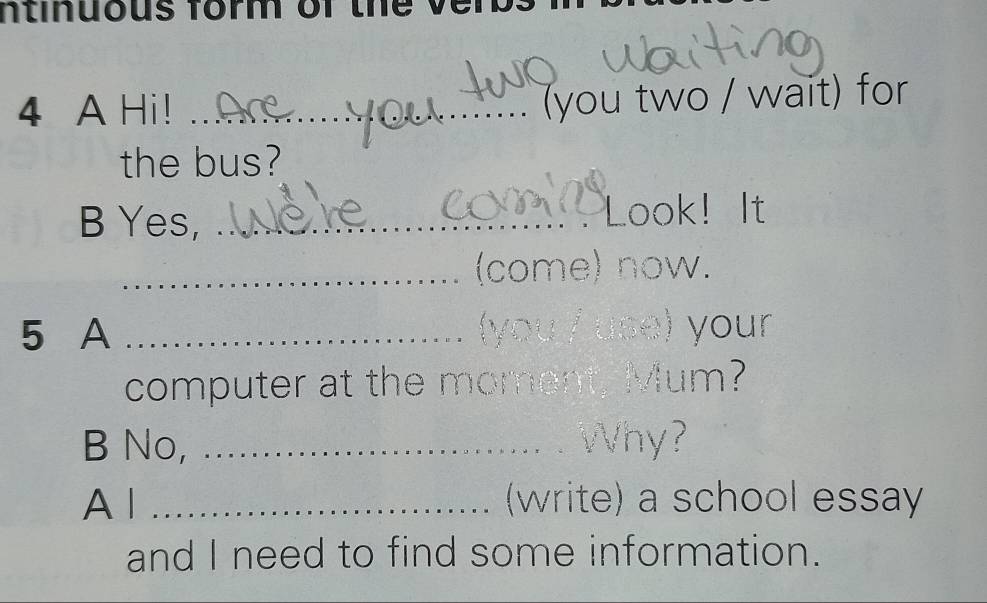 ntinuous form of the verbs in
two waiting
4 A Hi! Are you (you two / wait) for
the bus?
B Yes, We're coming. Look! It
(come) now.
5 A (you / use) your
computer at the moment, Mum?
B No, . Why?
A I (write) a school essay
and I need to find some information.